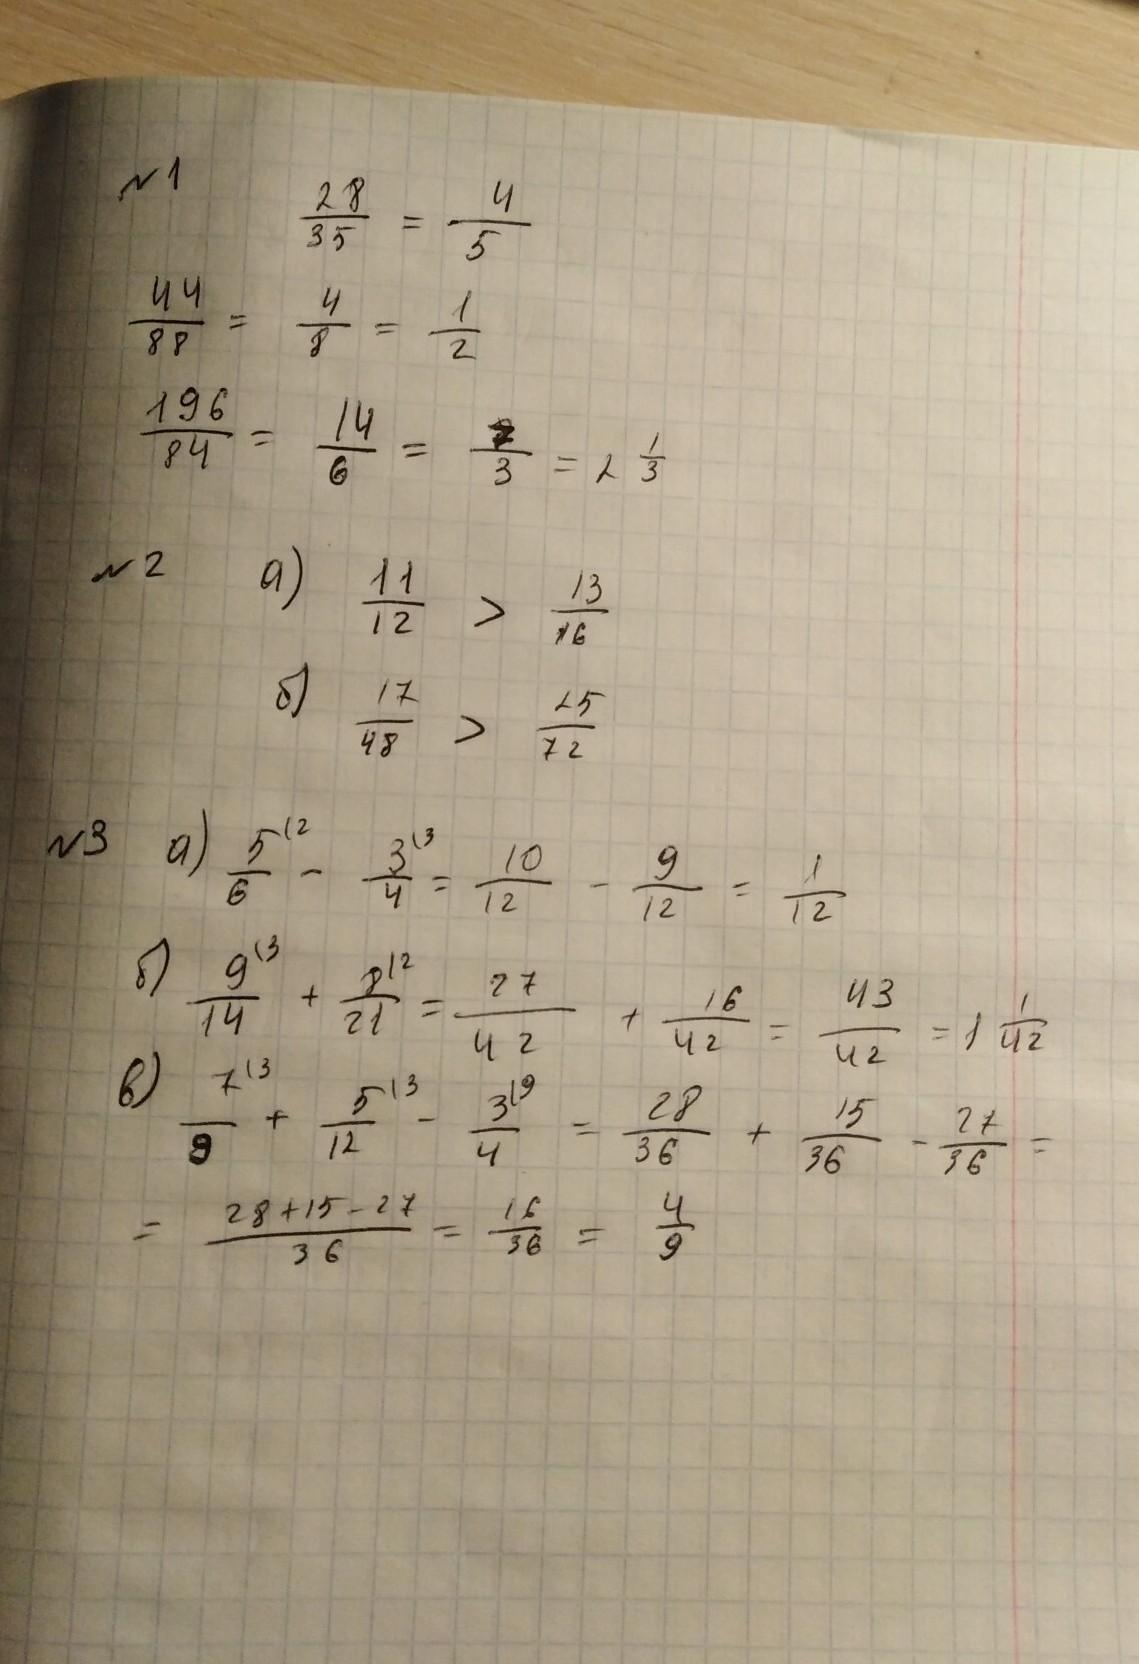 №1
28/35 = 4/5
44/88 = 4/8 = 1/2
196/84 = 14/6 = 7/3 = 2 1/3
№2 а) 11/12 > 13/16
б) 17/48 > 25/72
№3 а) 5/6 (2 - 3/4 (3 = 10/12 - 9/12 = 1/12
б) 9/14 (3 + 8/21 (2 = 27/42 + 16/42 = 43/42 = 1 1/42
в) 7/9 (3 + 5/12 (3 - 3/4 (9 = 28/36 + 15/36 - 27/36 =
= 28+15-27/36 = 16/36 = 4/9